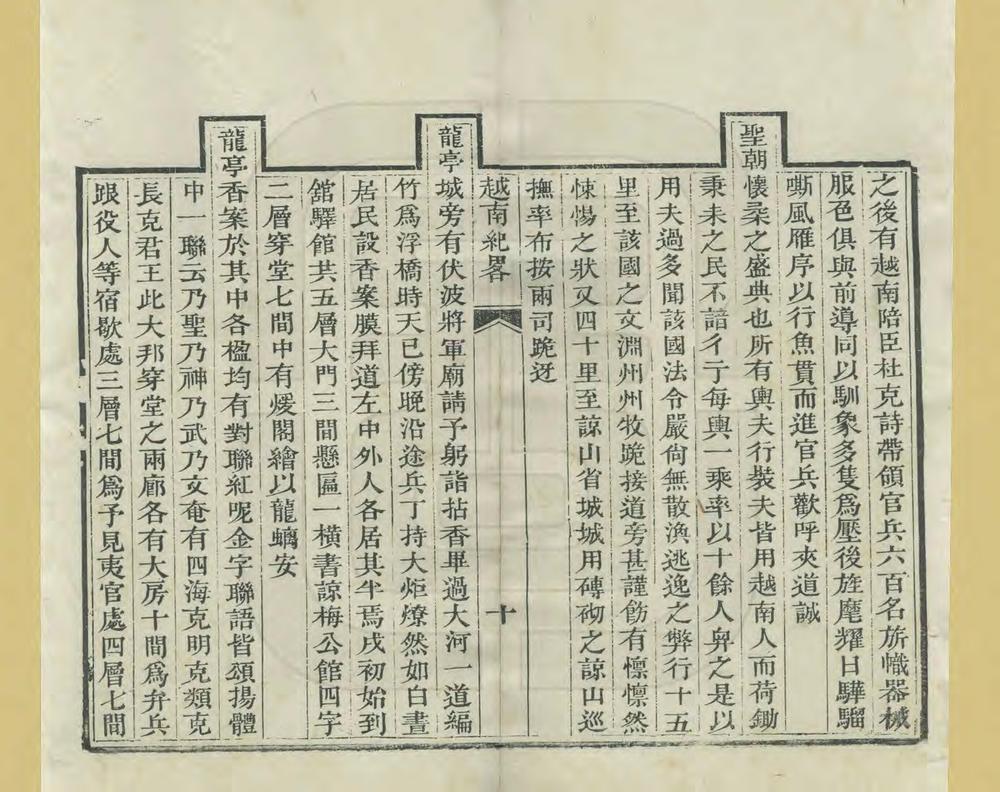 之後有越南陪臣杜克詩帶領官兵六百名旂幟器械
服色俱與前導同以馴象多隻為壓後旌麾耀日驊騮
嘶風雁序以行魚貫而進官兵歡呼夾道誠
聖朝懷柔之盛典也所有輿夫行裝夫皆用越南人而荷鋤
秉耒之民不諳彳亍每輿一乘率以十餘人舁之是以
用夫過多聞該國法令嚴尙無散渙逃逸之弊行十五
里至該國之文淵州州牧跪接道旁甚謹飭有懔懔然
悚惕之狀又四十里至諒山省城城用磚砌之諒山巡
撫率布按兩司跪迓
越南紀畧
十
龍亭城旁有伏波將軍廟請予躬詣拈香畢過大河一道編
竹為浮橋時天已傍晚沿途兵丁持大炬燎然如白晝
居民設香案膜拜道左中外人各居其半焉戌初始到
舘驛館共五層大門三間懸匾一橫書諒梅公館四字
二層穿堂七間中有煖閣繪以龍螭安
龍亭香案於其中各楹均有對聯紅呢金字聯語皆頌揚體
中一聯云乃聖乃神乃武乃文奄有四海克明克類克
長克君王此大邦穿堂之兩廊各有大房十間為弁兵
跟役人等宿歇處三層七間為予見夷官處四層七間